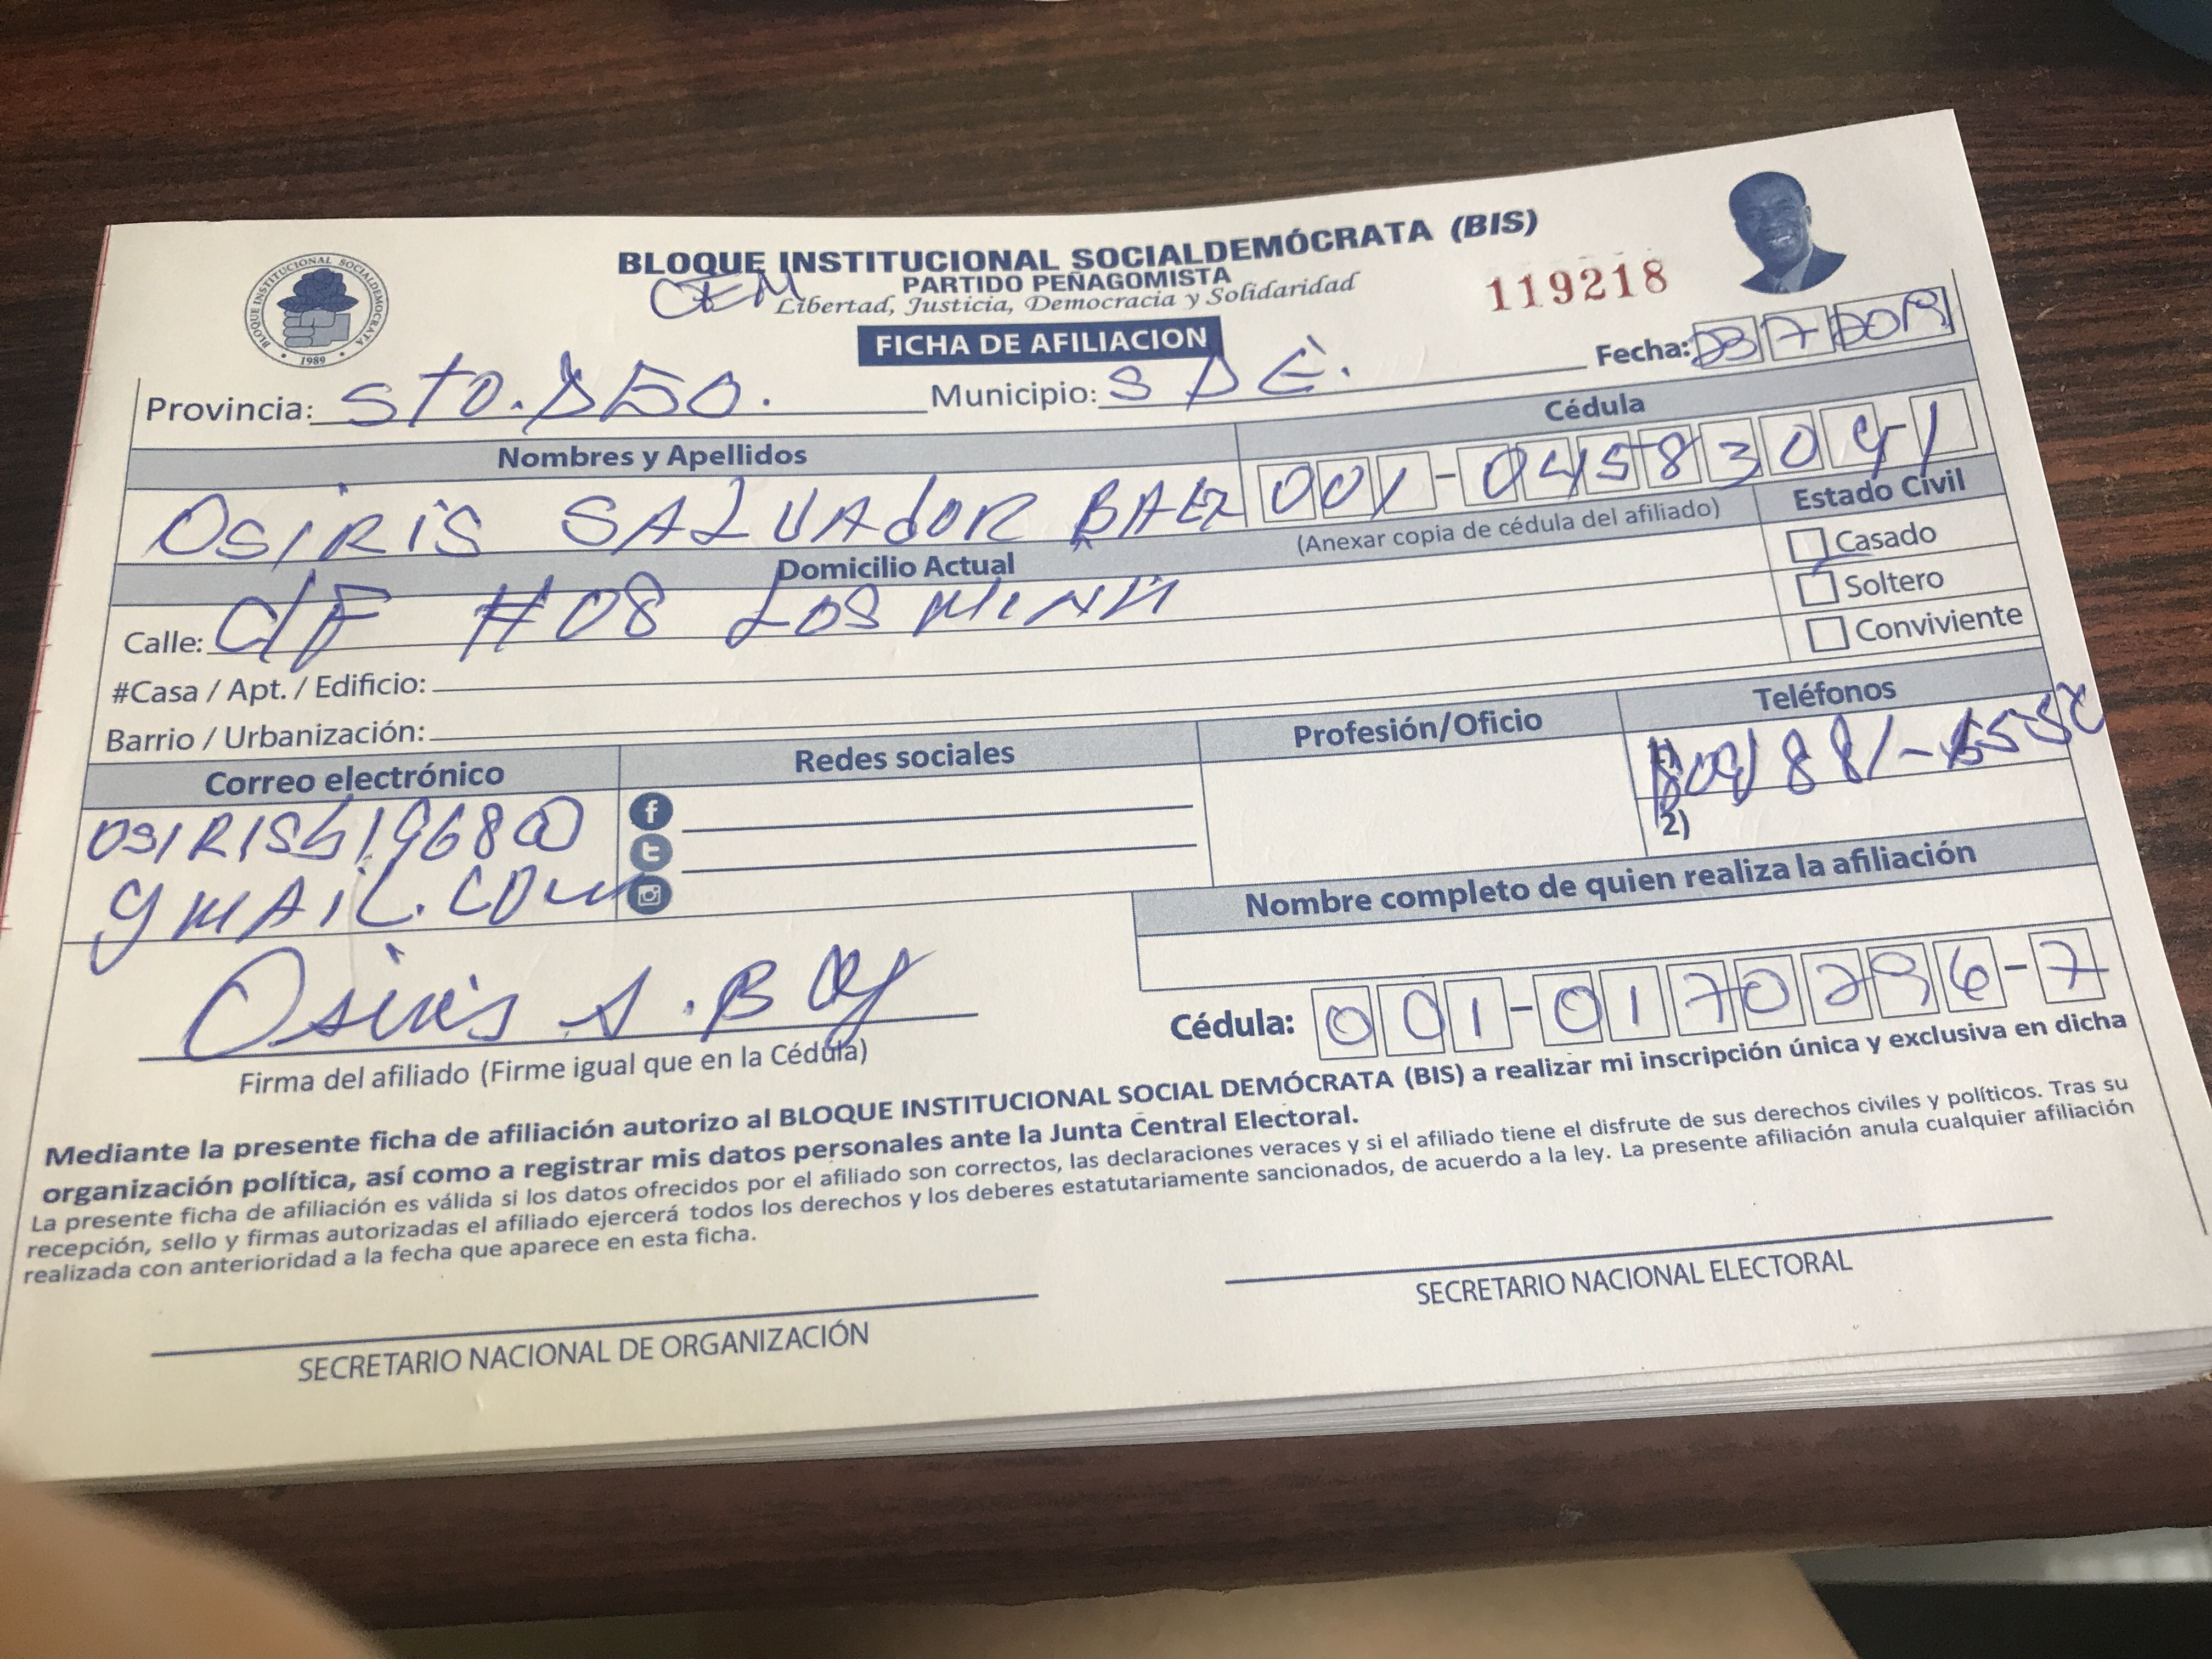 BLOQUE INSTITUCIONAL SOCIALDEMÓCRATA (BIS)
PARTIDO PEÑAGOMISTA
CEM
Libertad, Justicia, Democracia y Solidaridad
119218
BLOQUE INSTITUCIONAL SOCIALDEMOCRATA
1989
FICHA DE AFILIACION
Fecha: 23 7 2019
Provincia: STO. DGO. Municipio: S D E.
Nombres y Apellidos Cédula
OSIRIS SALVADOR BAEZ 001-0458309-1
(Anexar copia de cédula del afiliado) Estado Civil
Domicilio Actual Casado
Calle: C/F #08 LOS MINA Soltero
#Casa / Apt. / Edificio: Conviviente
Barrio / Urbanización:
Correo electrónico Redes sociales Profesión/Oficio Teléfonos
1) 809 881-
OSIRISB1968@
2)
GMAIL.COM
Nombre completo de quien realiza la afiliación
Osiris S. B
Firma del afiliado (Firme igual que en la Cédula) Cédula: 001-0170296-7
Mediante la presente ficha de afiliación autorizo al BLOQUE INSTITUCIONAL SOCIAL DEMÓCRATA (BIS) a realizar mi inscripción única y exclusiva en dicha
organización política, así como a registrar mis datos personales ante la Junta Central Electoral.
La presente ficha de afiliación es válida si los datos ofrecidos por el afiliado son correctos, las declaraciones veraces y si el afiliado tiene el disfrute de sus derechos civiles y políticos. Tras su
recepción, sello y firmas autorizadas el afiliado ejercerá todos los derechos y los deberes estatutariamente sancionados, de acuerdo a la ley. La presente afiliación anula cualquier afiliación
realizada con anterioridad a la fecha que aparece en esta ficha.
SECRETARIO NACIONAL DE ORGANIZACIÓN SECRETARIO NACIONAL ELECTORAL